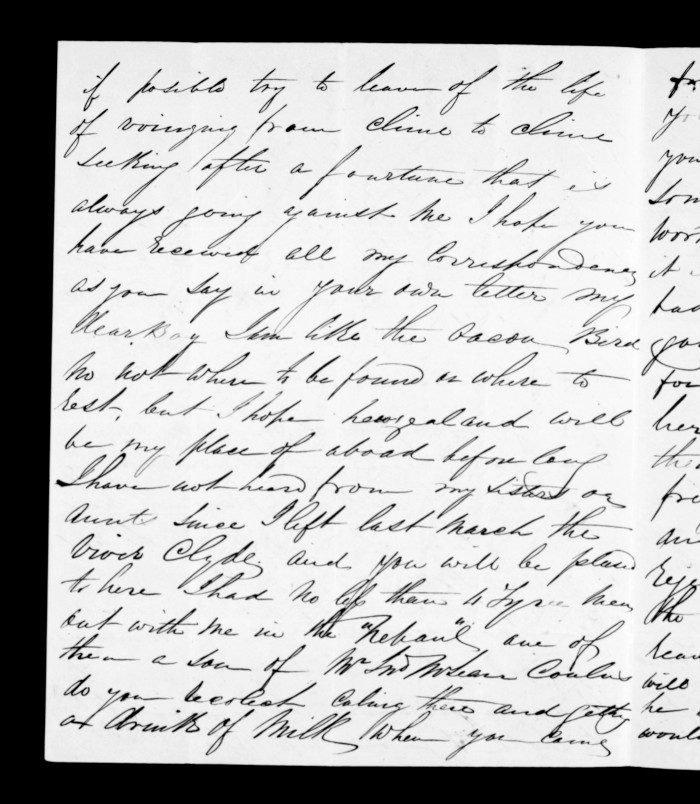 if posible try to leave of the life
of voinging from clime to clime
seeking after a fourtune that is
always going against me I hope you
have received all my Corrispondency
as you say in your own letter my
Dear Boy I am like the Bacon Bird
no not where to be found or where to
rest, but I hope newzealand will
be my place of aboad before long
I have not heard from my sisters or
aunts since I left last March the
River Clyde and you will be plased
to here I had no less than 4 Tyree men
out with me in the "Nepaul" one of
them a son of Mr Jno McLean
do you recolect caling there and getting
a drink of Milk when you came
fr
Yo
you
Som
wor
it
had
go
for
her
the
fri
an
the
leav
will
he
would